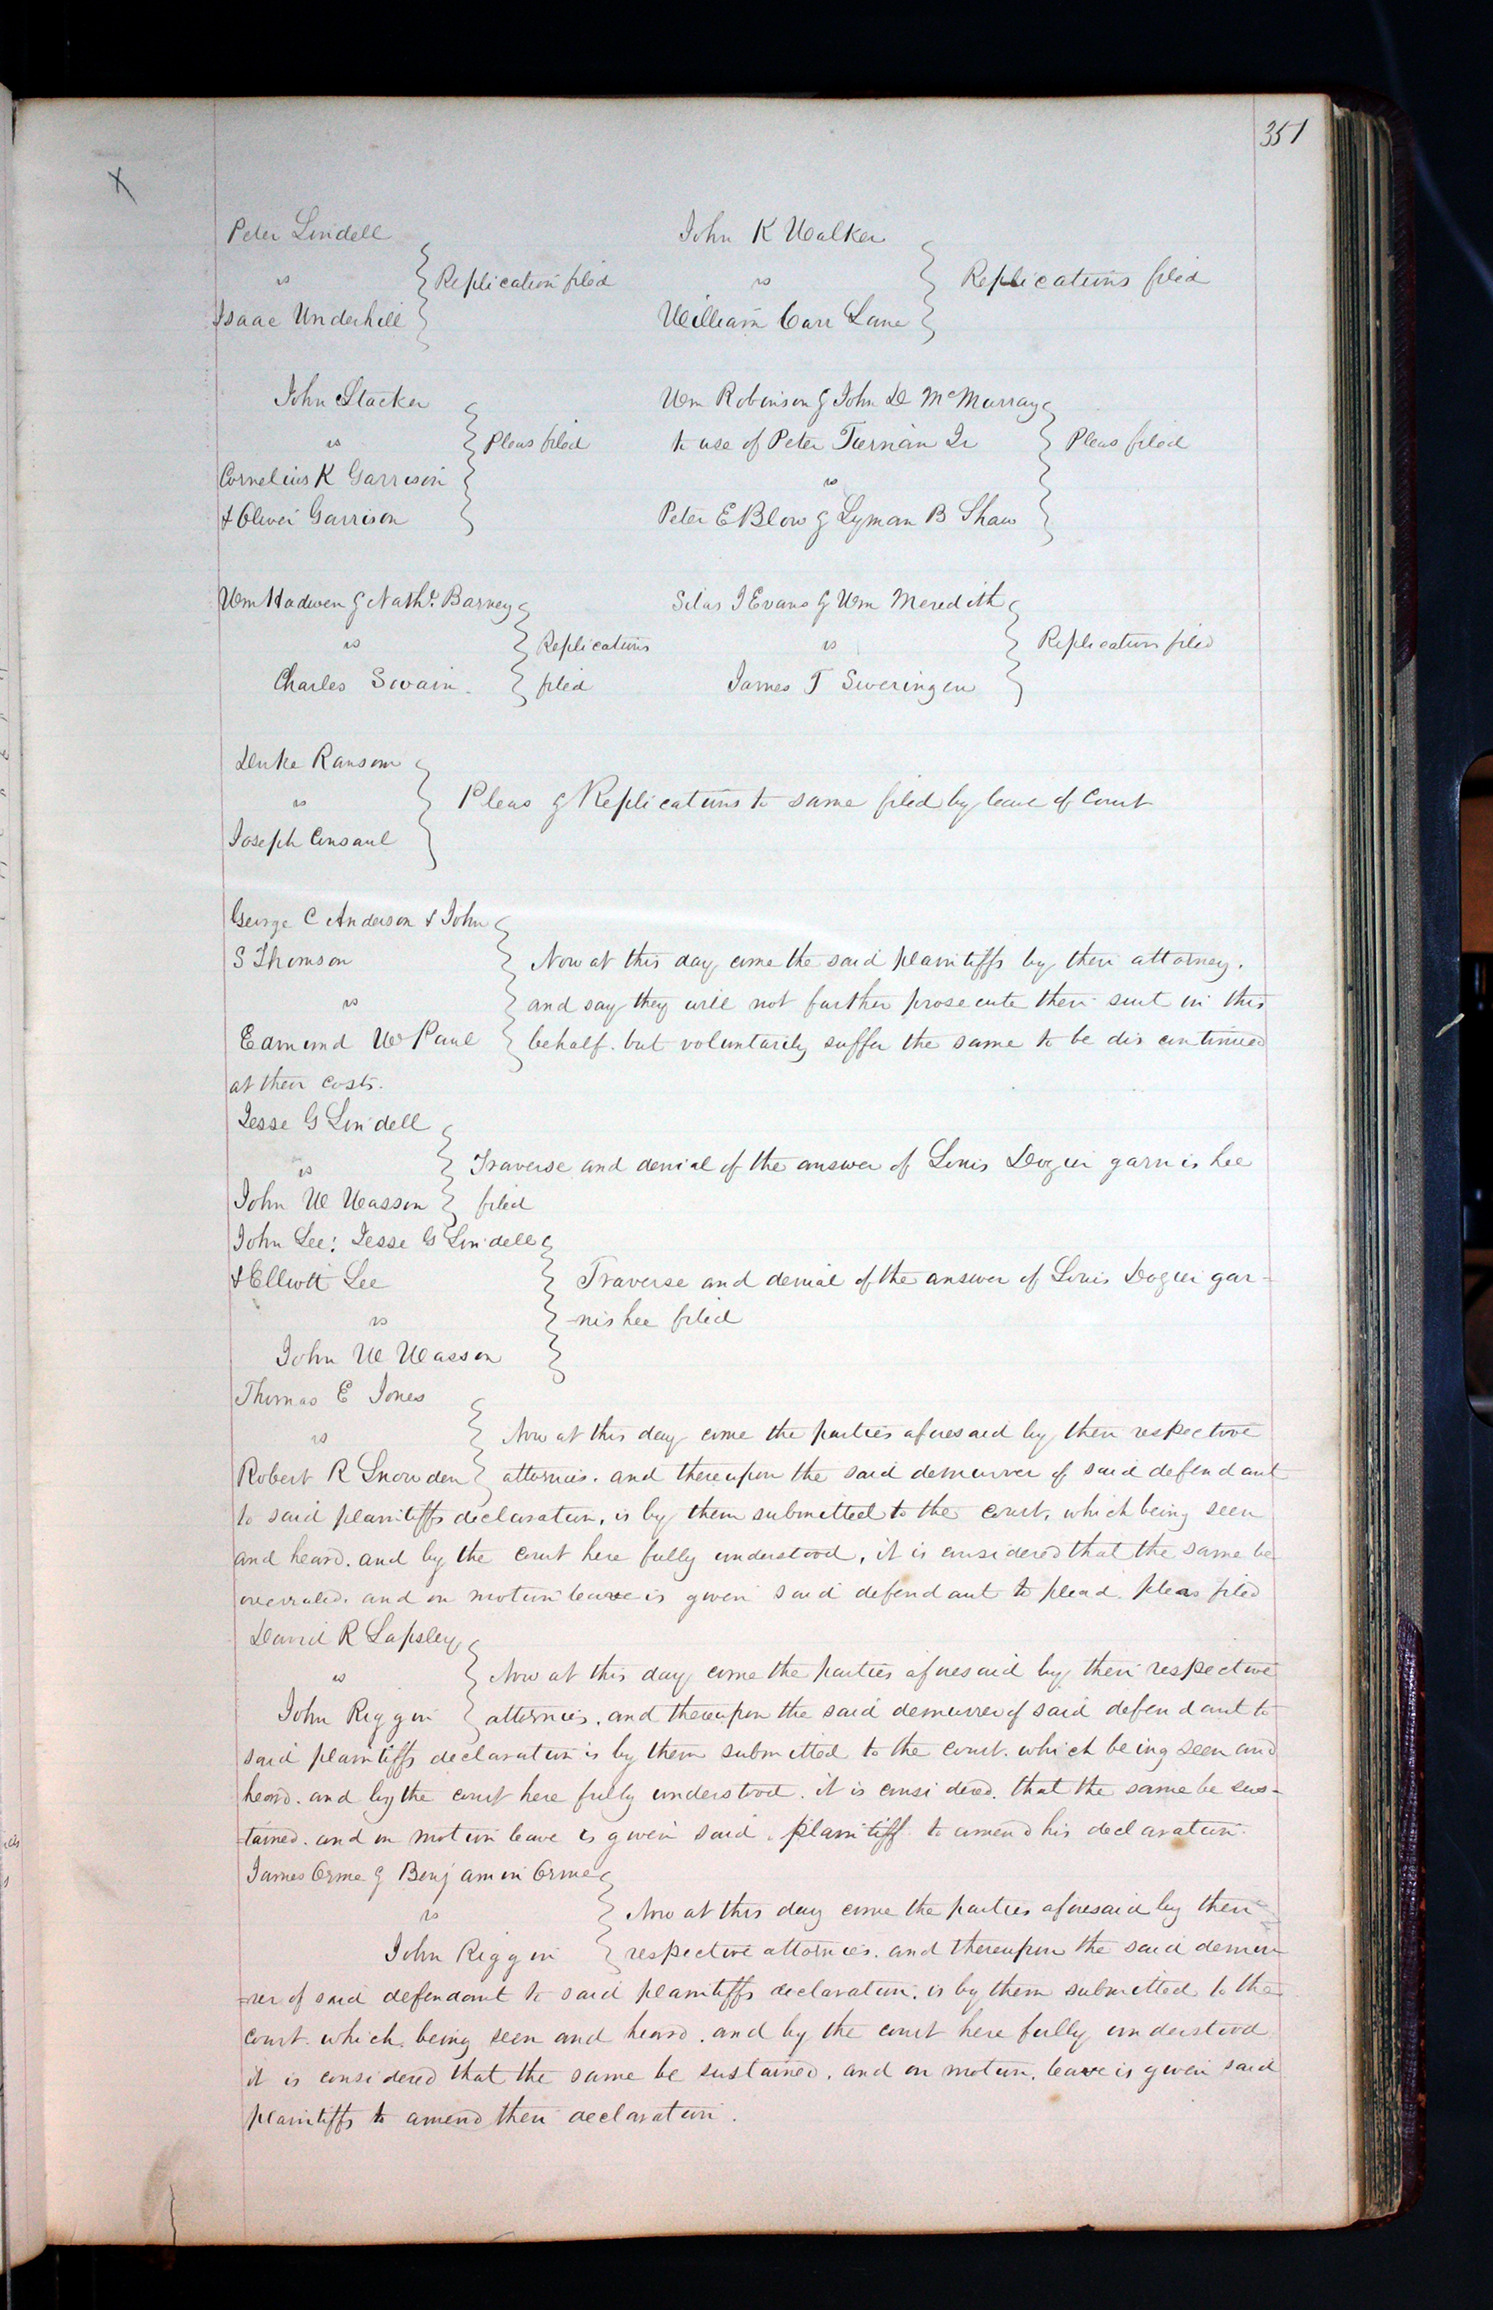 351
X
Peter Lindell
vs
Isaac Underhill
Replication filed
John K Walker
vs
William Carr Lane
Replications filed
John Stacker
vs
Cornelius K Garrison
& Oliver Garrison
Pleas filed
Wm Robinson & John D McMurray
to use of Peter Tiernan Jr
vs
Peter E Blow & Lyman B Shaw
Pleas filed
Wm Hadwen & Nathl. Barney
vs
Charles Swain.
Replications
filed
Silas J Evans & Wm Meredith
vs
James T Sweringen
Replication filed
Duke Ransom
vs
Joseph Consaul
Pleas & Replications to same filed by leave of Court
George C Anderson & John
S Thomson
vs
Edmund W Paul
Now at this day come the said plaintiffs by their attorney.
and say they will not further prosecute their suit in this
behalf. but voluntarily suffer the same to be dis continued
at their costs.
Jesse G Lindell
vs
John W Wasson
Traverse and denial of the answer of Louis Dozier garnishee
filed
John Lee: Jesse G Lindell
& Elliott Lee
vs
John W Wasson
Traverse and denial of the answer of Louis Dozier gar-
-nishee filed
Thomas E Jones
vs
Robert R Snowden
Now at this day come the parties aforesaid by their respective
attornies. and thereupon the said demurrer of said defendant
to said plaintiffs declaration, is by them submitted to the court, which being seen
and heard. and by the court here fully understood, it is considered that the same be
overruled. and on motion leave is given said defendant to plead. pleas filed
David R Lapsley
vs
John Riggin
Now at this day come the parties aforesaid by their respective
attornies. and thereupon the said demurrer of said defendant to
said plaintiffs declaration is by them submitted to the court. which being seen and
heard. and by the court here fully understood. it is considered. that the same be sus-
-tained. and on motion leave is given said plaintiff to amend his declaration.
James Orme & Benjamin Orme
vs
John Riggin
Now at this day come the parties aforesaid by their
respective attornies. and thereupon the said demur
-rer of said defendant to said plaintiffs declaration. is by them submitted to the
court. which being seen and heard. and by the court here fully understood
it is considered that the same be sustained. and on motion. leave is given said
plaintiffs to amend their declaration.